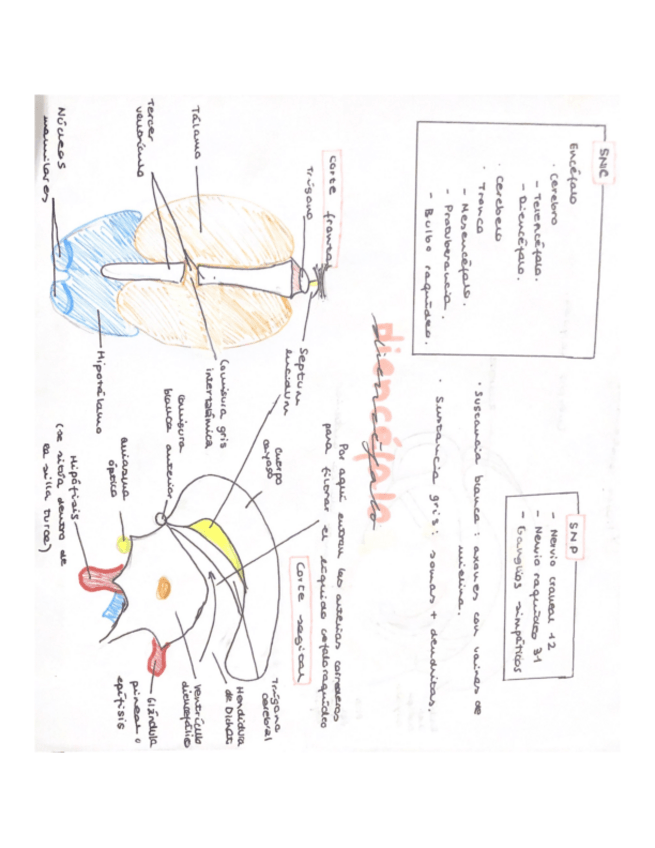 SNC
Encéfalo
· Cerebro
- Telencéfalo.
- Diencéfalo.
· Cerebelo
· Tronco
- Mesencéfalo.
- Protuberancia.
- Bulbo raquídeo.
SNP
- Nervio craneal 12
- Nervio raquídeo 31
- Ganglios simpáticos
· Sustancia blanca: axones con vainas de
mielina.
· Sustancia gris: somas + dendritas.
diencéfalo
Corte frontal
Trígono
Tálamo
Tercer
ventrículo
Núcleos
mamilares
Septum
lucidum
Comisura gris
intertalámica
Hipotálamo
Por aquí entran las arterias coroideas
para filtrar el líquido cefalorraquídeo
Corte sagital
Cuerpo
calloso
Comisura
blanca anterior
quiasma
óptico
Hipófisis
(se sitúa dentro de
la silla turca)
Trígono
cerebral
Hendidura
de Bichat
Ventrículo
diencefálico
Glándula
pineal o
epífisis